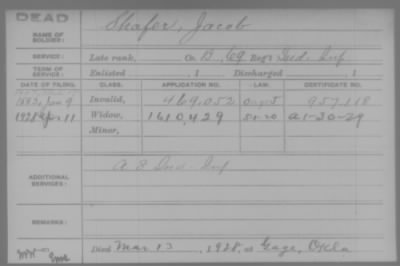 DEAD
NAME OF SOLDIER: Shafer, Jacob
SERVICE: Late rank, Co B, 69 Reg't Ind. Inf
TERM OF SERVICE: Enlisted , 1 Discharged , 1
DATE OF FILING. CLASS. APPLICATION NO. LAW. CERTIFICATE NO.
1883, Jan 9 Invalid, 469,052 957,118
1928 Apr 11 Widow, 1610,429 5-1-20 A1-30-29
Minor,
ADDITIONAL SERVICES: Ind. Inf
REMARKS:
Died Mar 13, 1928, at Gage, Okla